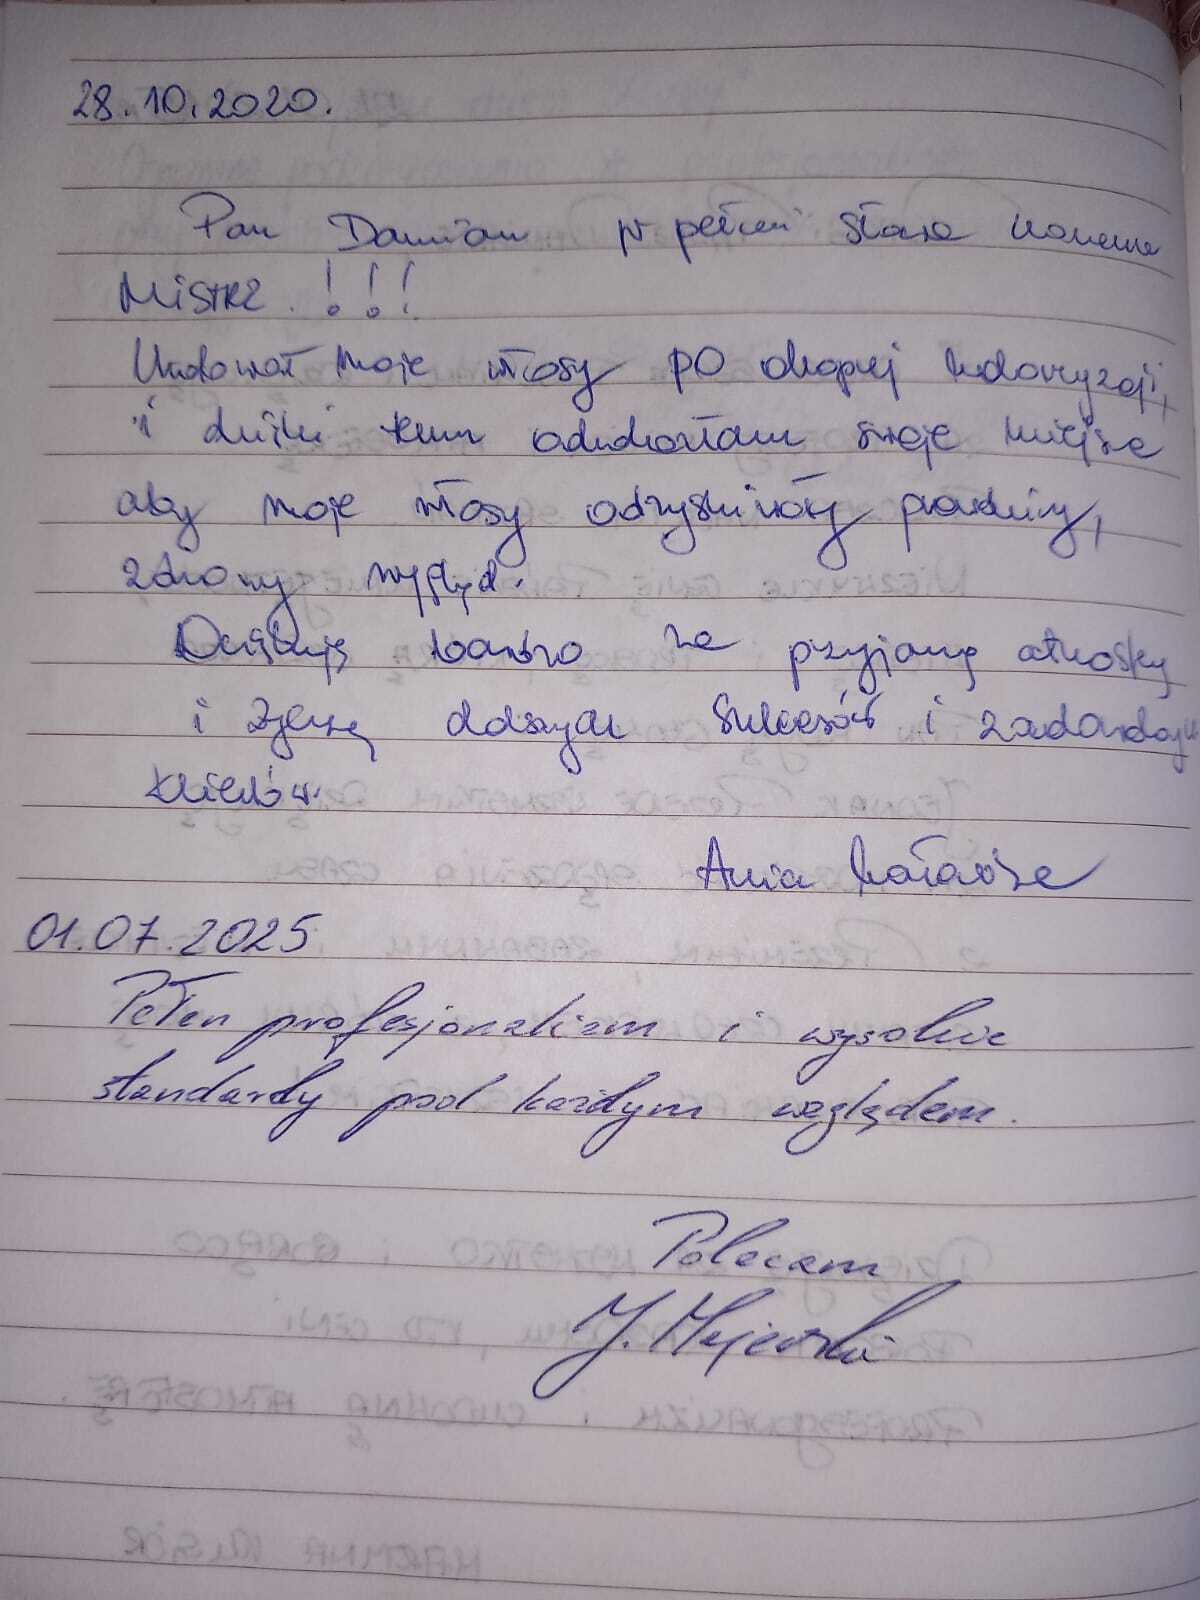 28.10.2020.
Pan Damian w pełni słowa znaczeniu
MISTRZ !!!
Uratował moje włosy PO okropnej koloryzacji,
i dzięki temu odzyskałam swoje miejsce
aby moje włosy odzyskiwały prawdziwy,
zdrowy wygląd.
Dziękuję bardzo za przyjazną atmosferę
i życzę dalszych sukcesów i zadowolonych
klientów.
Ania
01.07.2025
Pełen profesjonalizm i wysokie
standardy pod każdym względem.
Polecam
J. Majewski